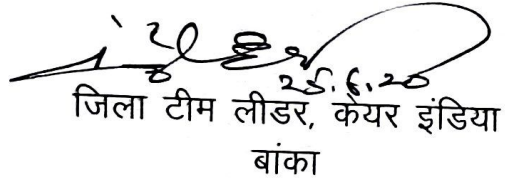 25.6.20
जिला टीम लीडर, केयर इंडिया
बांका